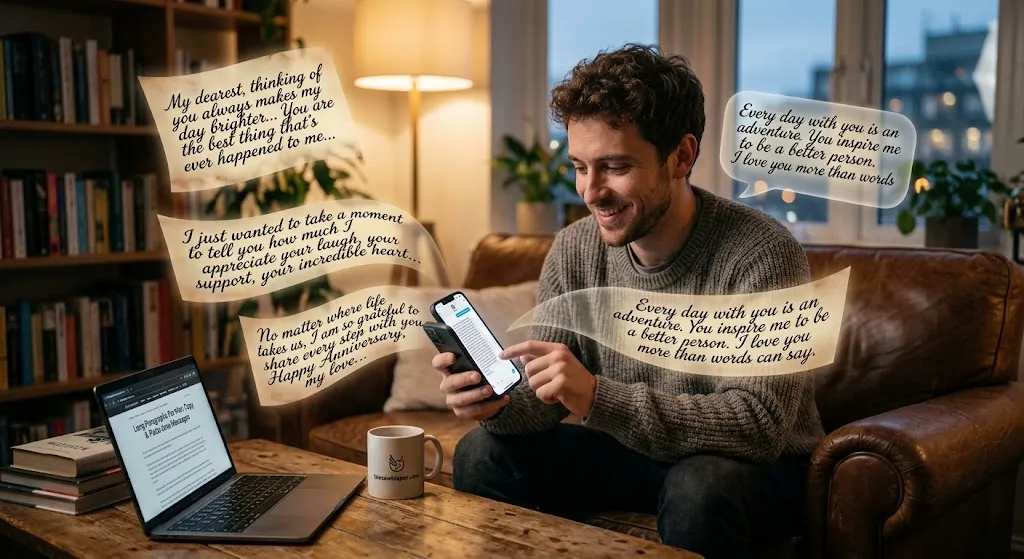 My dearest, thinking of
you always makes my
day brighter... You are
the best thing that's
ever happened to me...
I just wanted to take a moment
to tell you how much I
appreciate your laugh, your
support, your incredible heart...
No matter where life
takes us, I am so grateful to
share every step with you
Happy Anniversary,
my love...
Every day with you is an
adventure. You inspire me
to be a better person.
I love you more than words
Every day with you is an
adventure. You inspire me to be
a better person. I love you
more than words can say.
Long Paragraphs For Him Copy
& Paste Love Messages